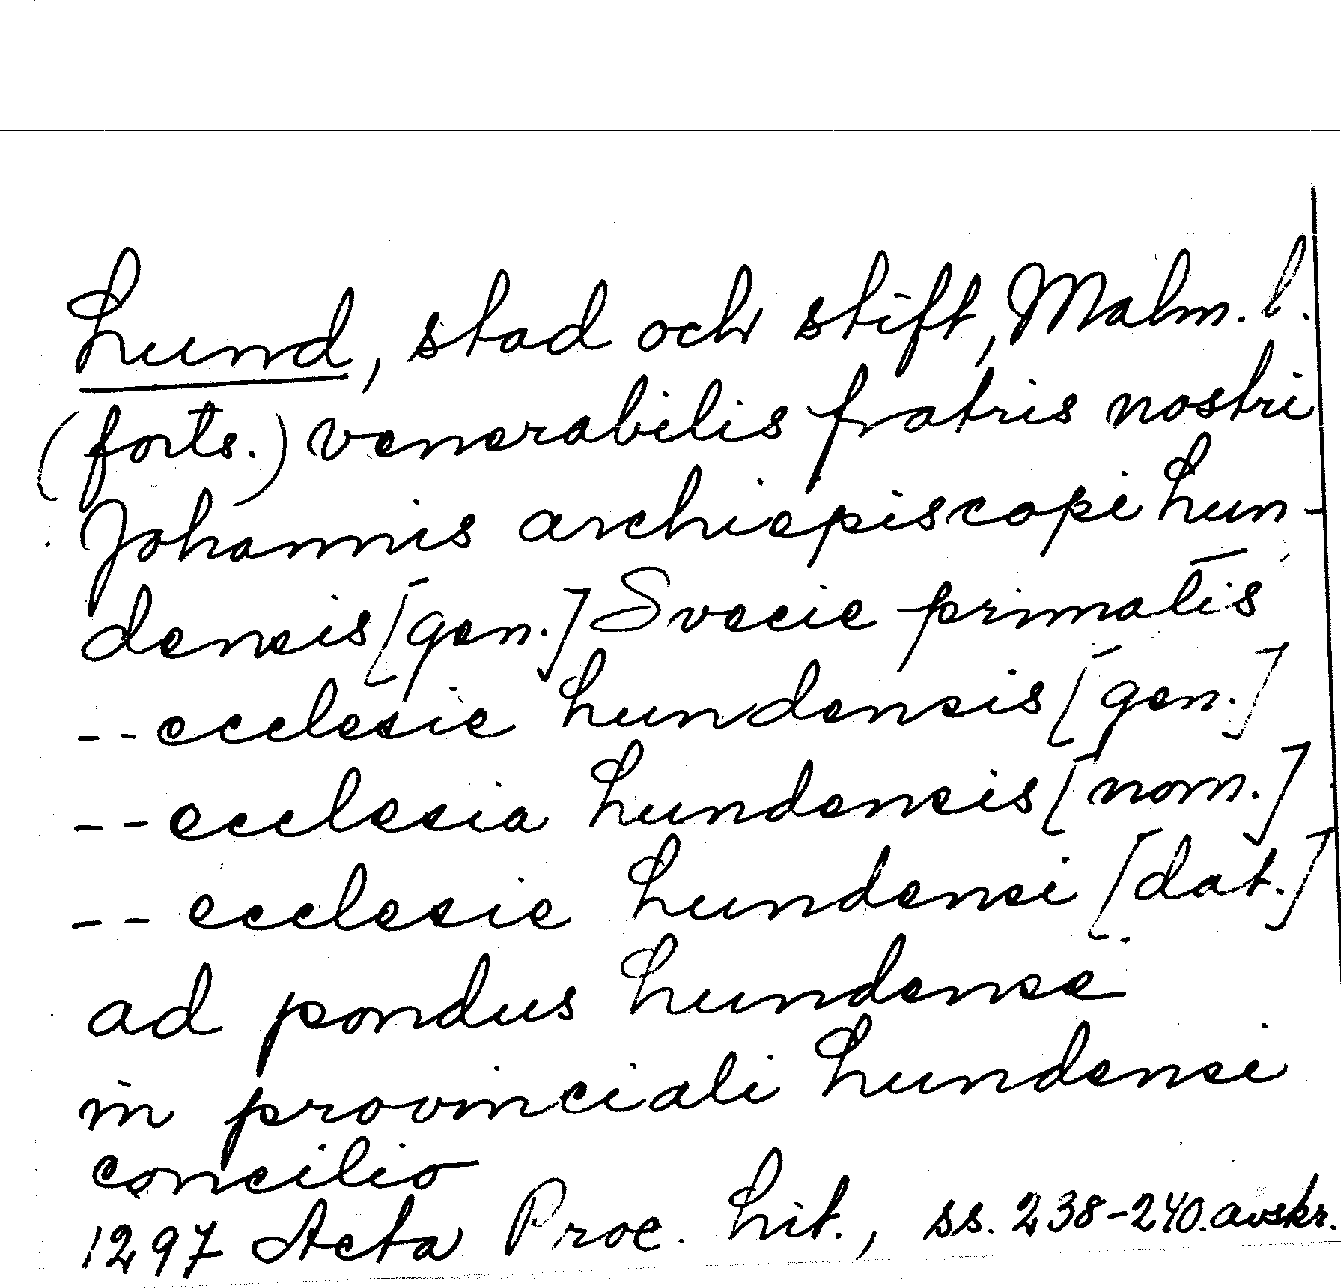 Lund, stad och stift, Malm. l.
(forts.) venerabilis fratris nostri
Johannis archiepiscopi Lun-
densis [gen.] Svecie primatis
-- ecclesie Lundensis [gen.]
-- ecclesia Lundensis [nom.]
-- ecclesie Lundensi [dat.]
ad pondus Lundense
in provinciali Lundensi
concilio
1297 Acta Proc. Lit., ss. 238-240. avskr.